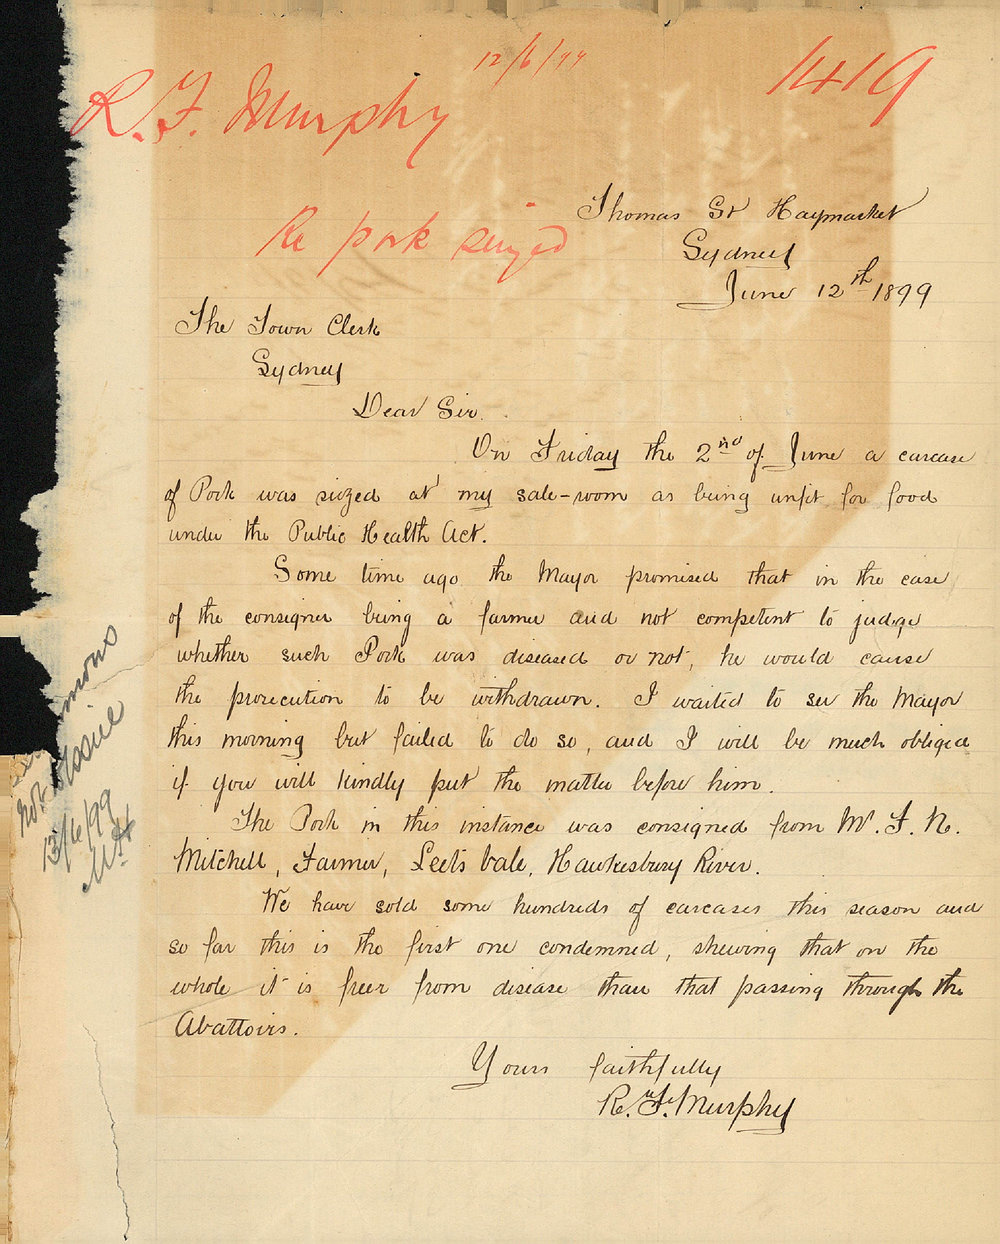 12/6/99
1419
R. F. Murphy
Re pork seized
Thomas St Haymarket
Sydney
June 12th 1899
The Town Clerk
Sydney
Dear Sir.
On Friday the 2nd of June a carcase
of Pork was siezed at my sale-room as being unfit for food
under the Public Health Act.
Some time ago the Mayor promised that in the case
of the consigner being a farmer and not competent to judge
whether such Pork was diseased or not, he would cause
the prosecution to be withdrawn. I waited to see the Mayor
this morning but failed to do so, and I will be much obliged
if you will kindly put the matter before him.
The Pork in this instance was consigned from Mr. F. N.
Mitchell, Farmer, Leets Vale, Hawkesbury River.
We have sold some hundreds of carcases this season and
so far this is the first one condemned, shewing that on the
whole it is freer from disease than that passing through the
Abattoirs.
Yours faithfully
R. F. Murphy
not
13/6/99